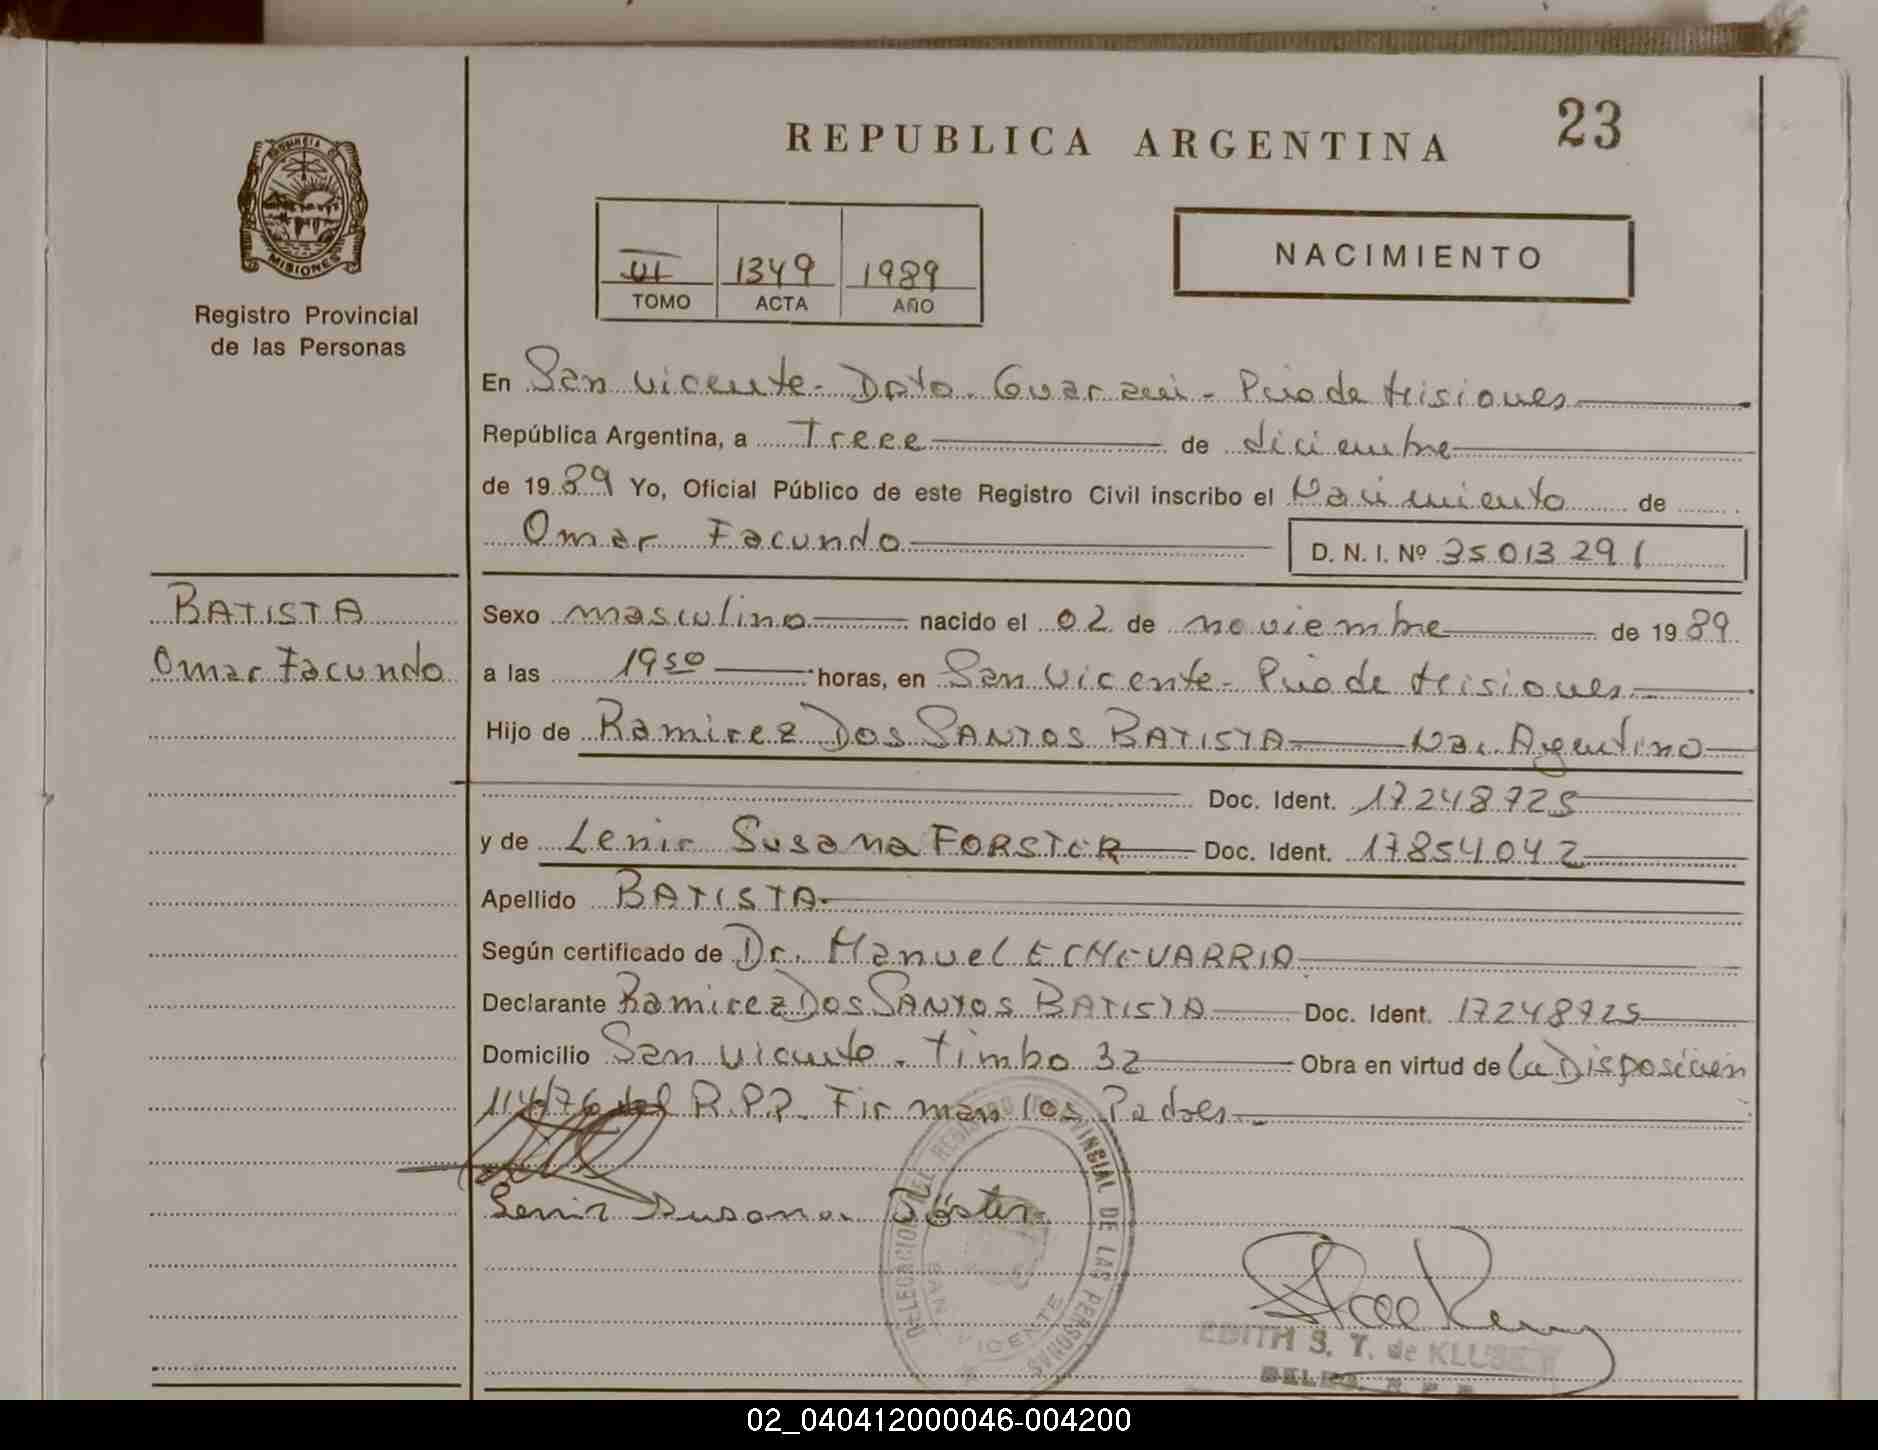 23
REPUBLICA ARGENTINA
PROVINCIA DE
MISIONES
Registro Provincial
de las Personas
III 1349 1989
TOMO ACTA AÑO
NACIMIENTO
En San Vicente - Dpto. Guaraní - Pcia de Misiones
República Argentina, a Trece de diciembre
de 1989 Yo, Oficial Público de este Registro Civil inscribo el Nacimiento de
Omar Facundo D. N. I. Nº 35 013 291
BATISTA
Omar Facundo
Sexo masculino nacido el 02 de noviembre de 1989
a las 19 50 horas, en San Vicente - Pcia de Misiones
Hijo de Ramirez DOS SANTOS BATISTA Nac. Argentino
Doc. Ident. 17248725
y de Lenir Susana FORSTER Doc. Ident. 17854042
Apellido BATISTA
Según certificado de Dr. Manuel ECHEVARRIA
Declarante Ramirez DOS SANTOS BATISTA Doc. Ident. 17248725
Domicilio San Vicente - Timbo 32 Obra en virtud de la Disposición
114/76 del R.P.P. Firman los Padres
Lenir Susana Förster
DELEGACION DEL REGISTRO PROVINCIAL DE LAS PERSONAS
SAN VICENTE
EDITH S. T. de
02_040412000046-004200